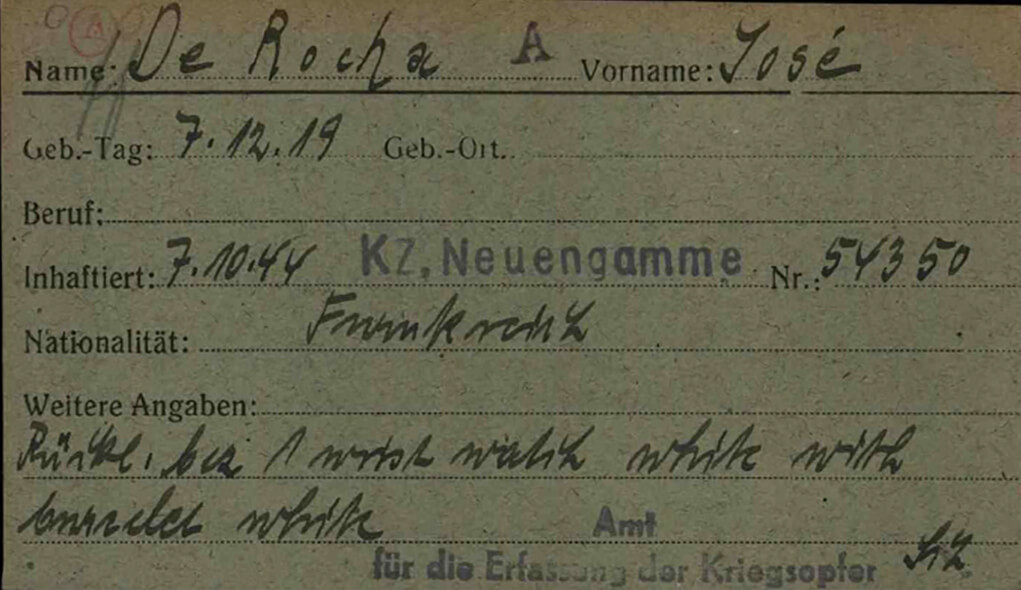 Name: De Rocha A Vorname: José
Geb.-Tag: 7.12.19 Geb.-Ort.
Beruf:
Inhaftiert: 7.10.44 KZ, Neuengamme Nr.: 54350
Nationalität: Frankreich
Weitere Angaben:
1 wrist watch white with
bracelet white Amt
für die Erfassung der Kriegsopfer